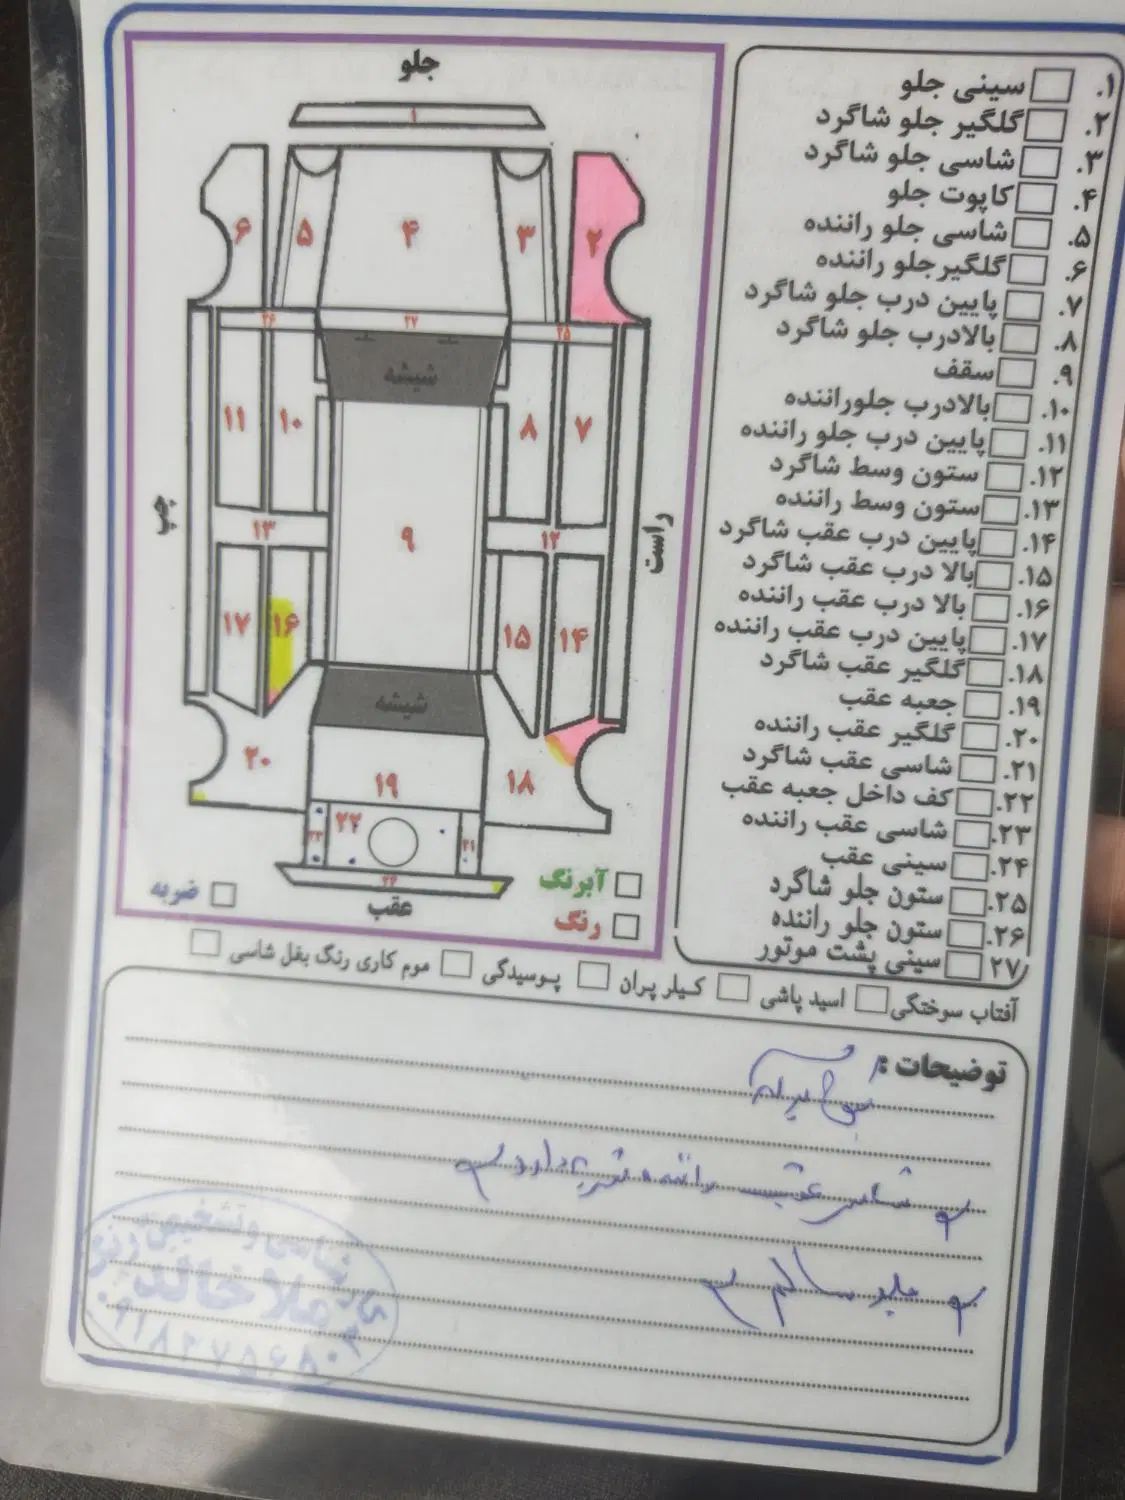 جلو
۱
۲
۳
۴
۵
۶
۲۶
۲۷
۲۵
شیشه
۱۱
۱۰
۸
۷
چپ
راست
۱۳
۹
۱۲
۱۷
۱۶
۱۵
۱۴
شیشه
۲۰
۱۹
۱۸
۲۳
۲۲
۲۱
۲۴
عقب
آبرنگ
رنگ
ضربه
۱. سینی جلو
۲. گلگیر جلو شاگرد
۳. شاسی جلو شاگرد
۴. کاپوت جلو
۵. شاسی جلو راننده
۶. گلگیرجلو راننده
۷. پایین درب جلو شاگرد
۸. بالادرب جلو شاگرد
۹. سقف
۱۰. بالادرب جلوراننده
۱۱. پایین درب جلو راننده
۱۲. ستون وسط شاگرد
۱۳. ستون وسط راننده
۱۴. پایین درب عقب شاگرد
۱۵. بالا درب عقب شاگرد
۱۶. بالا درب عقب راننده
۱۷. پایین درب عقب راننده
۱۸. گلگیر عقب شاگرد
۱۹. جعبه عقب
۲۰. گلگیر عقب راننده
۲۱. شاسی عقب شاگرد
۲۲. کف داخل جعبه عقب
۲۳. شاسی عقب راننده
۲۴. سینی عقب
۲۵. ستون جلو شاگرد
۲۶. ستون جلو راننده
۲۷. سینی پشت موتور
آفتاب سوختگی اسید پاشی کیلر پران پوسیدگی موم کاری رنگ بغل شاسی
توضیحات :
عقب راننده
جلو سالم
کارشناسی و تشخیص رنگ
ملا خالد